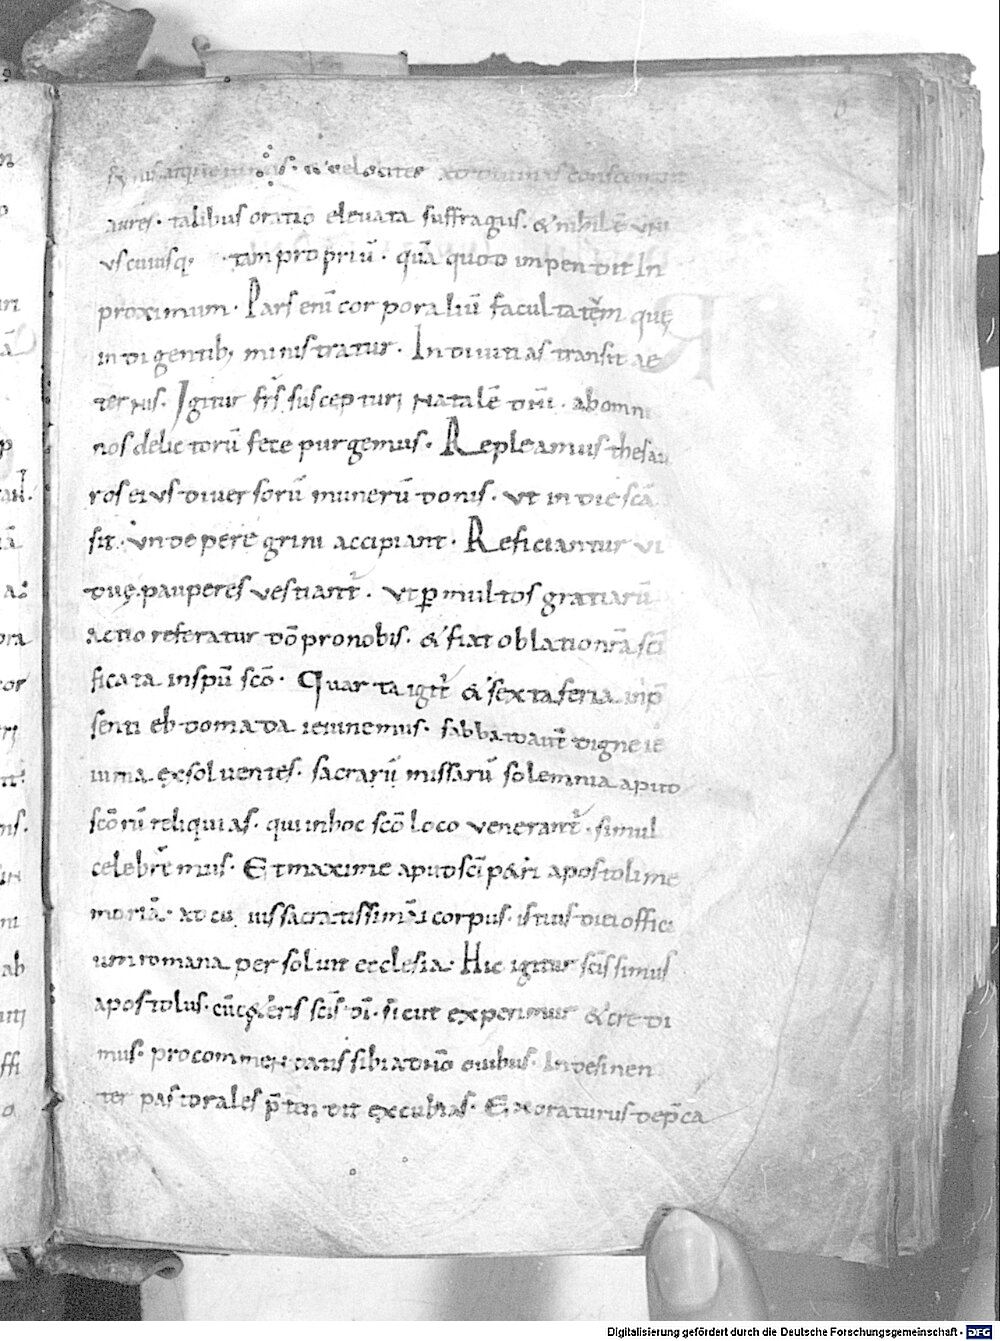 & velociter ad divinas conscendit
aures· talibus oratio elevata suffragiis· & nihil ē uni
uscuiusq; tam propriū· quā quod impendit In
proximum· Pars enī corporaliū facultatēm quę
indigentib; ministratur· In divitias transit ae
ternas· Igitur frs̄ suscepturi Natalē dn̄i· ab omni
nos delictorū fece purgemus· Repleamus thesau
ros eius diversorū munerū donis· ut in die scā
sit· unde peregrini accipiant· Reficiantur vi
duę· pauperes vestiant̄· ut p̱ multos gratiarū
actio referatur dō pro nobis· & fiat oblatio nr̄a sc̄i
ficata in spū scō· Quarta igit̄ & sexta feria inp̄
senti ebdomada ieiunemus· sabbato aut̄ digne ie
iunia exsolventes· sacrarū missarū solemnia apud
scōrū reliquias· qui in hoc scō loco venerant̄· simul
celebrem̄us· Et maxime apud sc̄i p&ri apostoli me
moriā· ad cuius sacratissimū corpus· istius diei offici
um romana persolvit ecclesia· Hic igitur scīssimus
apostolus· cū c&eris scīs dī· sicut experimur & credi
mus· pro commendatis sibi a dn̄o ovibus· Indesinen
ter pastorales p̄tendit excubias· Exoraturus dep̄ca
Digitalisierung gefördert durch die Deutsche Forschungsgemeinschaft - DFG